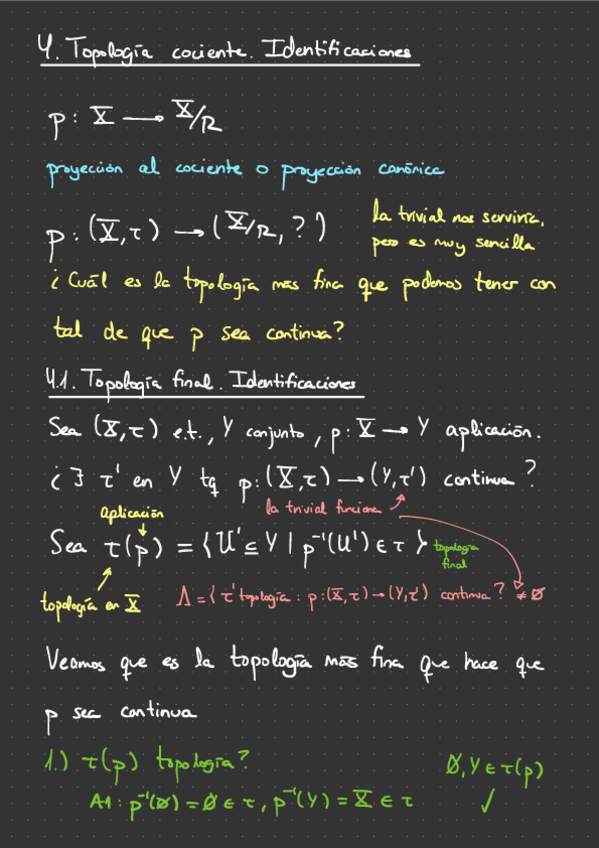 4. Topología cociente. Identificaciones
p: X → X/R
proyección al cociente o proyección canónica
p: (X, τ) → (X/R, ?)
la trivial nos serviría,
pero es muy sencilla
¿Cuál es la topología más fina que podemos tener con
tal de que p sea continua?
4.1. Topología final. Identificaciones
Sea (X, τ) e.t., Y conjunto, p: X → Y aplicación.
¿∃ τ' en Y tq p: (X, τ) → (Y, τ') continua?
aplicación
la trivial funciona
Sea τ(p) = {U' ⊆ Y | p⁻¹(U') ∈ τ}
topología
final
topología en X
Λ = {τ' topología : p: (X, τ) → (Y, τ') continua} ≠ ∅
Veamos que es la topología más fina que hace que
p sea continua
1.) τ(p) topología?
∅, Y ∈ τ(p)
A1: p⁻¹(∅) = ∅ ∈ τ, p⁻¹(Y) = X ∈ τ ✓